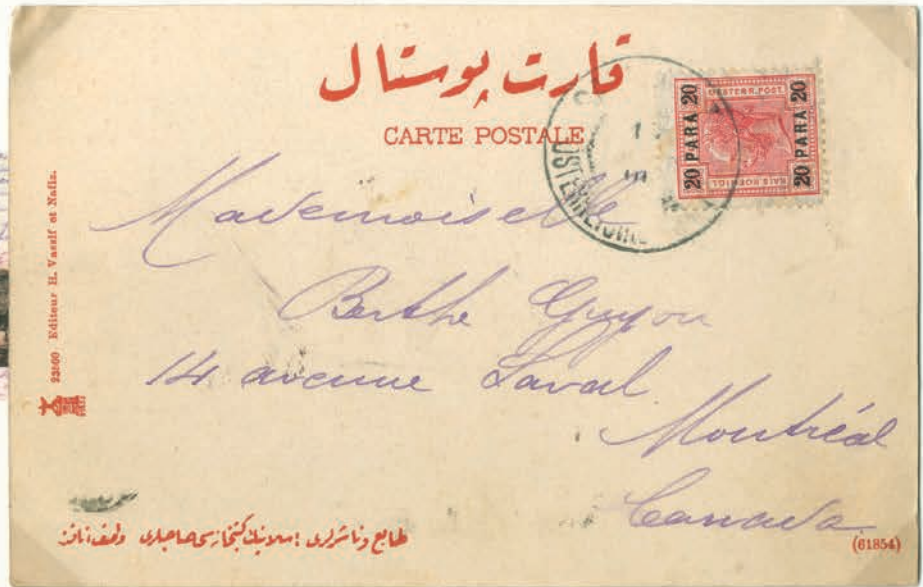 قارت پوستال
CARTE POSTALE
20 PARA 20
OESTERR. POST.
20 PARA 20
Mademoiselle
Berthe Guyon
14 avenue Laval
Montréal
Canada
Editeur H. Vassif et Nafiz.
طابع و ناشرلری : سلانیك كتبخانه‌سی صاحبلری
(61854)